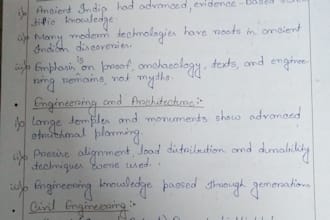 i) Ancient India had advanced, evidence-based scien-
tific knowledge.
ii) Many modern technologies have roots in ancient
Indian discoveries.
iii) Emphasis is on proof, archaeology, texts, and engine-
ering remains, not myths.
• Engineering and Architecture:-
i) Large temples and monuments show advanced
structural planning.
ii) Precise alignment, load distribution and durability
techniques were used.
iii) Engineering knowledge passed through generations
• Civil Engineering:-